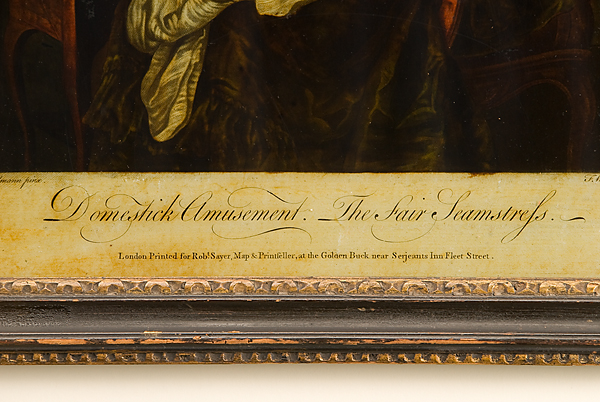 mann pinx.
Domestick Amusement. The Fair Seamstreſs.
London Printed for Robt. Sayer, Map & Printſeller, at the Golden Buck near Serjeants Inn Fleet Street.